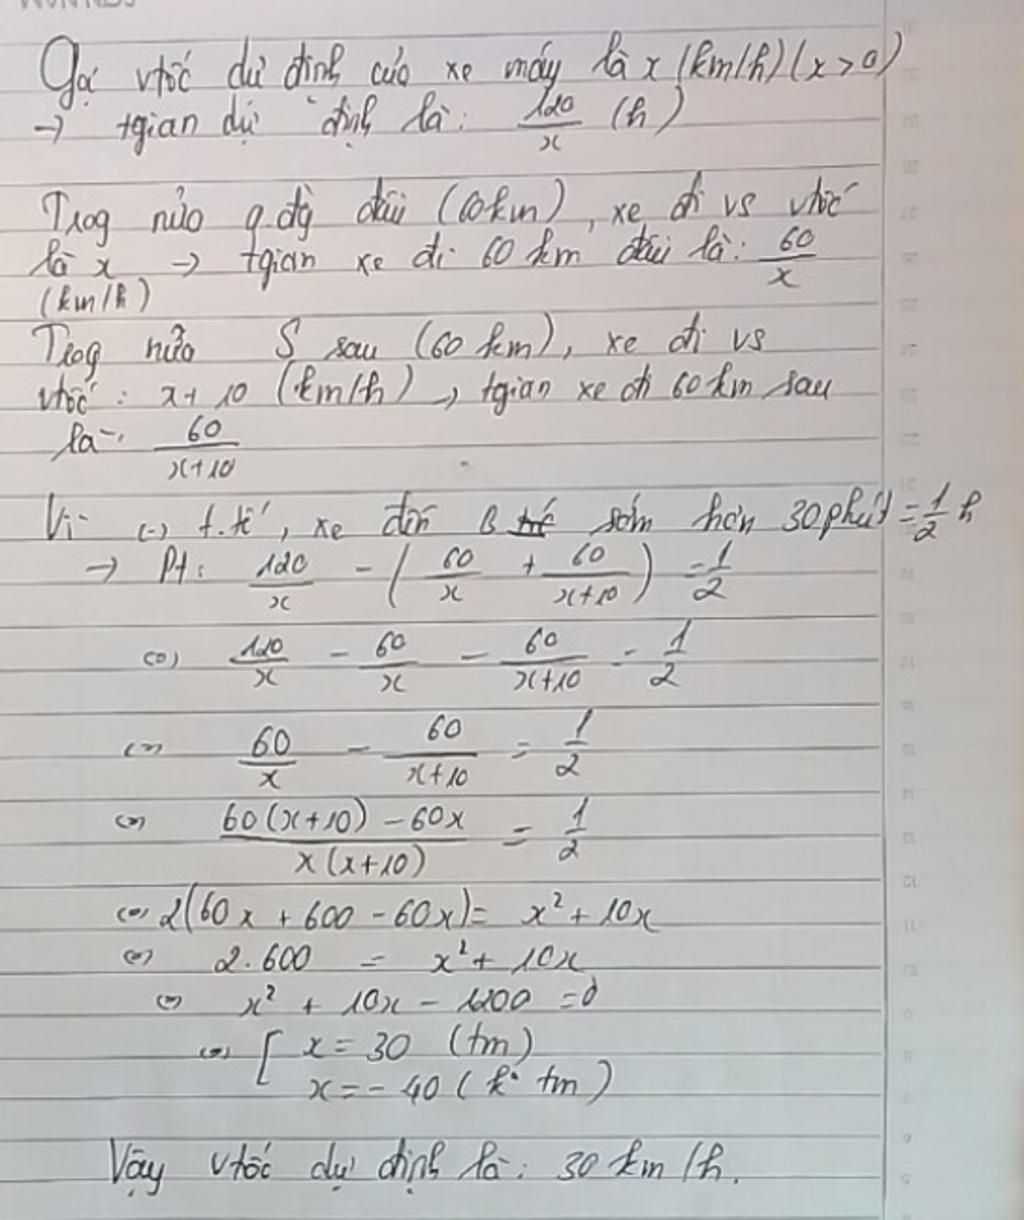 Gọi vtốc dự định của xe máy là x (km/h) (x > 0)
→ tgian dự định là: 120/x (h)
Trog nửa q.đg đầu (60km), xe đi vs vtốc
là x → tgian xe đi 60 km đầu là: 60/x
(km/h)
Trog nửa S sau (60 km), xe đi vs
vtốc: x + 10 (km/h) → tgian xe đi 60 km sau
là: 60/(x+10)
Vì (-) t.tế, xe đến B sớm hơn 30 phút = 1/2 h
→ Pt: 120/x - (60/x + 60/(x+10)) = 1/2
<=> 120/x - 60/x - 60/(x+10) = 1/2
<=> 60/x - 60/(x+10) = 1/2
<=> (60(x+10) - 60x)/(x(x+10)) = 1/2
<=> 2(60x + 600 - 60x) = x² + 10x
<=> 2.600 = x² + 10x
<=> x² + 10x - 1200 = 0
<=> [ x = 30 (tm)
x = -40 (k° tm)
Vậy vtốc dự định là: 30 km/h.